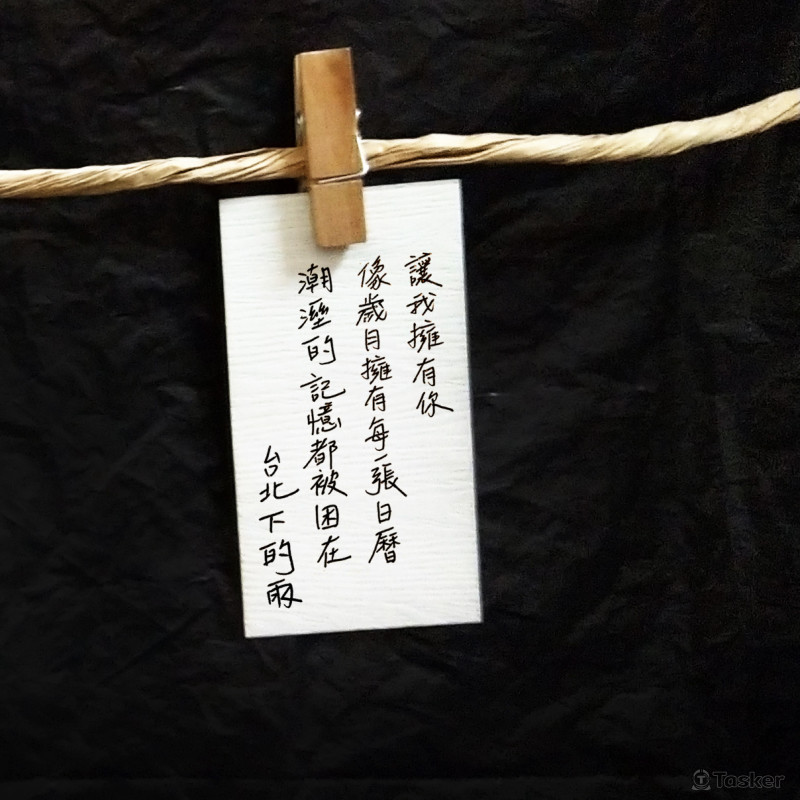 讓我擁有你
像歲月擁有每一張日曆
潮溼的記憶都被困在
台北下的雨
Tasker